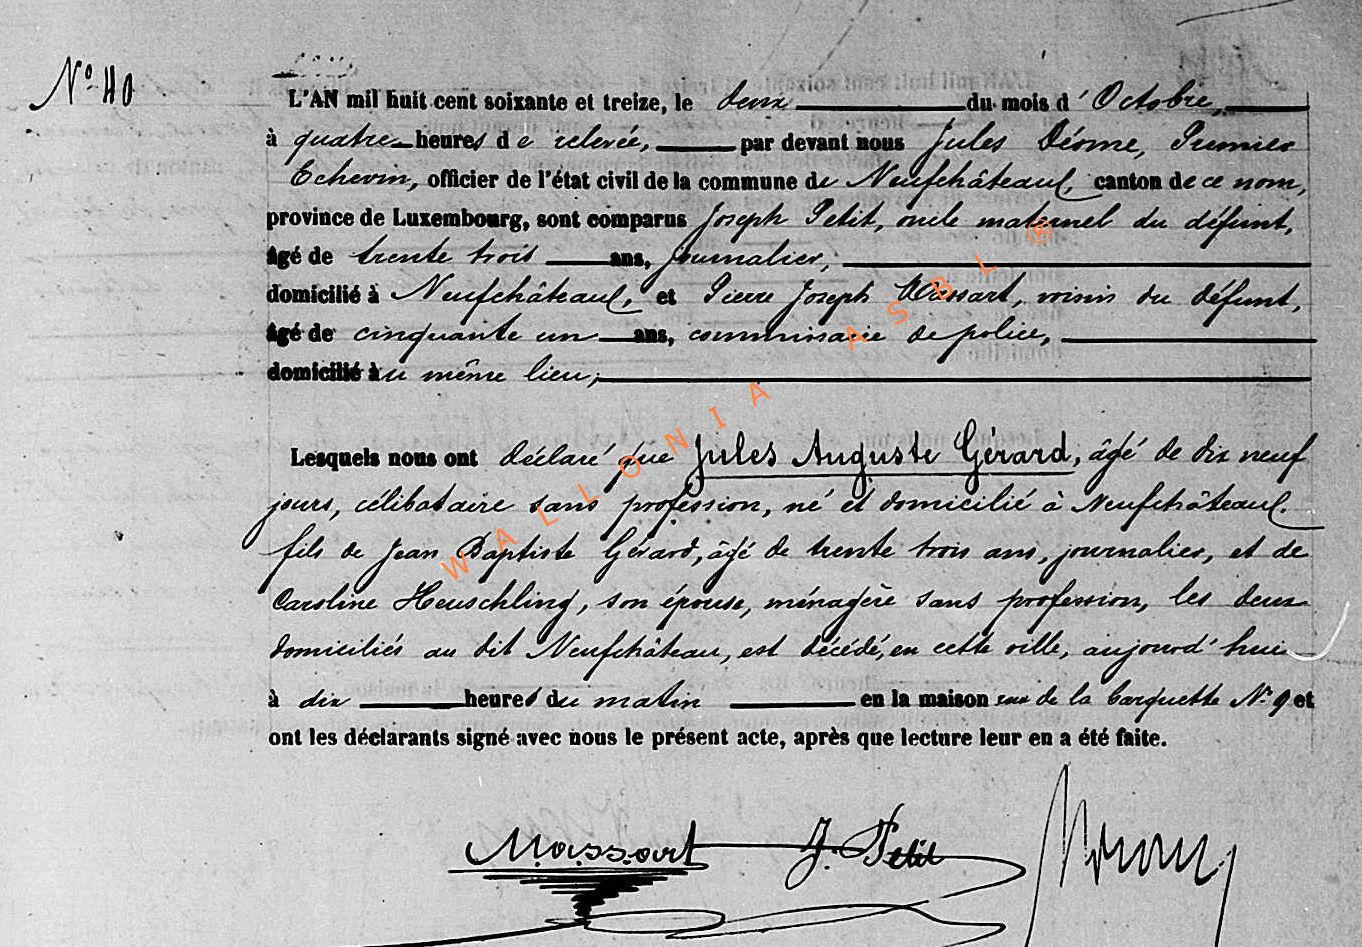 N° 40
L'AN mil huit cent soixante et treize, le deux du mois d'Octobre,
à quatre heures de relevée, par devant nous Jules Déome, Premier
Echevin, officier de l'état civil de la commune de Neufchâteau, canton de ce nom,
province de Luxembourg, sont comparus Joseph Petit, oncle maternel du défunt,
âgé de trente trois ans, journalier,
domicilié à Neufchâteau, et Pierre Joseph Massart, voisin du défunt,
âgé de cinquante un ans, commissaire de police,
domicilié au même lieu,
Lesquels nous ont déclaré que Jules Auguste Gérard, âgé de dix neuf
jours, célibataire sans profession, né et domicilié à Neufchâteau.
fils de Jean Baptiste Gérard, âgé de trente trois ans, journalier, et de
Caroline Heuschling, son épouse, ménagère sans profession, les deux
domiciliés au dit Neufchâteau, est décédé, en cette ville, aujourd'hui
à dix heures du matin en la maison rue de la barquette N° 9 et
ont les déclarants signé avec nous le présent acte, après que lecture leur en a été faite.
Massart J. Petit
WALLONIA ASBL ®